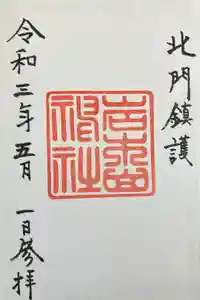 北門鎮護
岩木山
神社
令和三年五月一日参拝